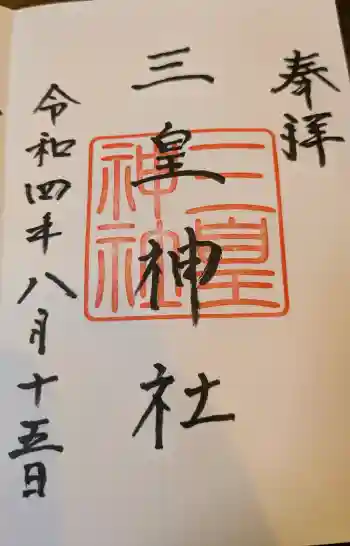 奉拝
三皇神社
三皇神社
令和四年八月十五日